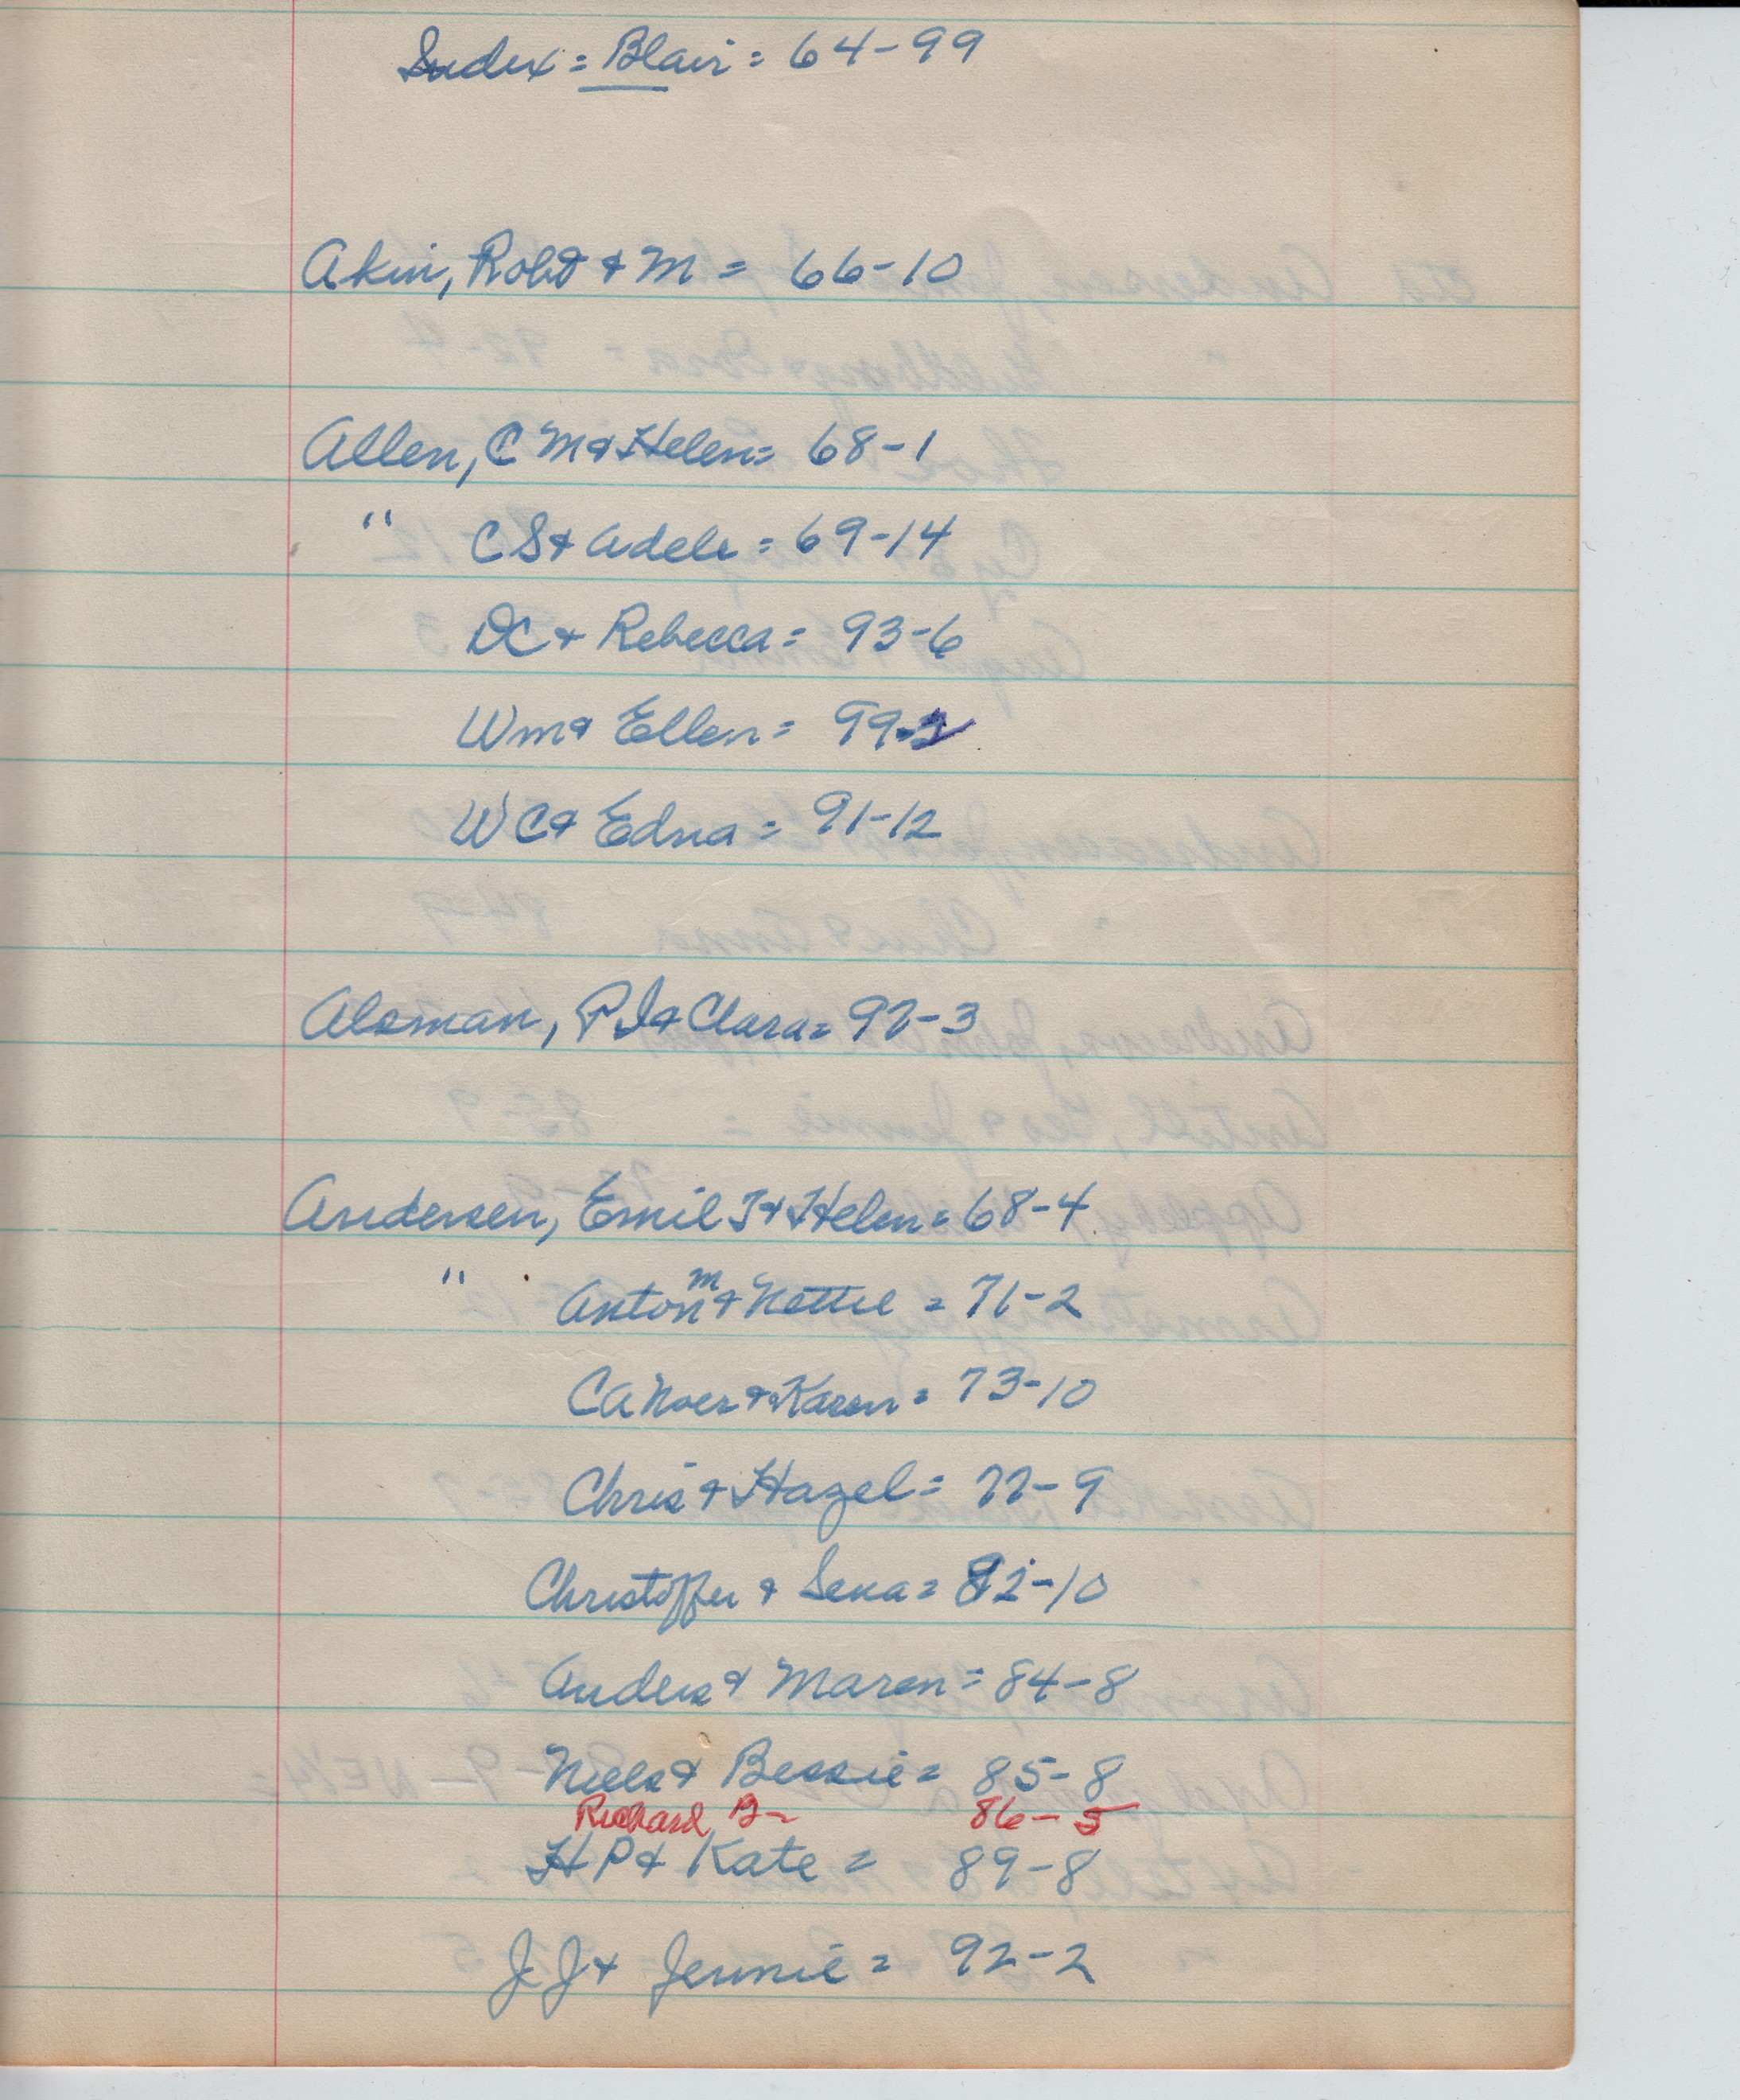 Index = Blair = 64-99
Akin, Robt & M = 66-10
Allen, C M & Helen = 68-1
" C S & Adele = 69-14
DC & Rebecca = 93-6
Wm & Ellen = 99-2
WC & Edna = 91-12
Alsman, P I & Clara = 97-3
Andersen, Emil J & Helen = 68-4
" Anton M & Nettie = 71-2
CA & Karen = 73-10
Chris & Hazel = 77-9
Christoffer & Sena = 82-10
Anders & Maren = 84-8
Niels & Bessie = 85-8
Richard G- 86-5
H P & Kate = 89-8
J J & Jennie = 92-2